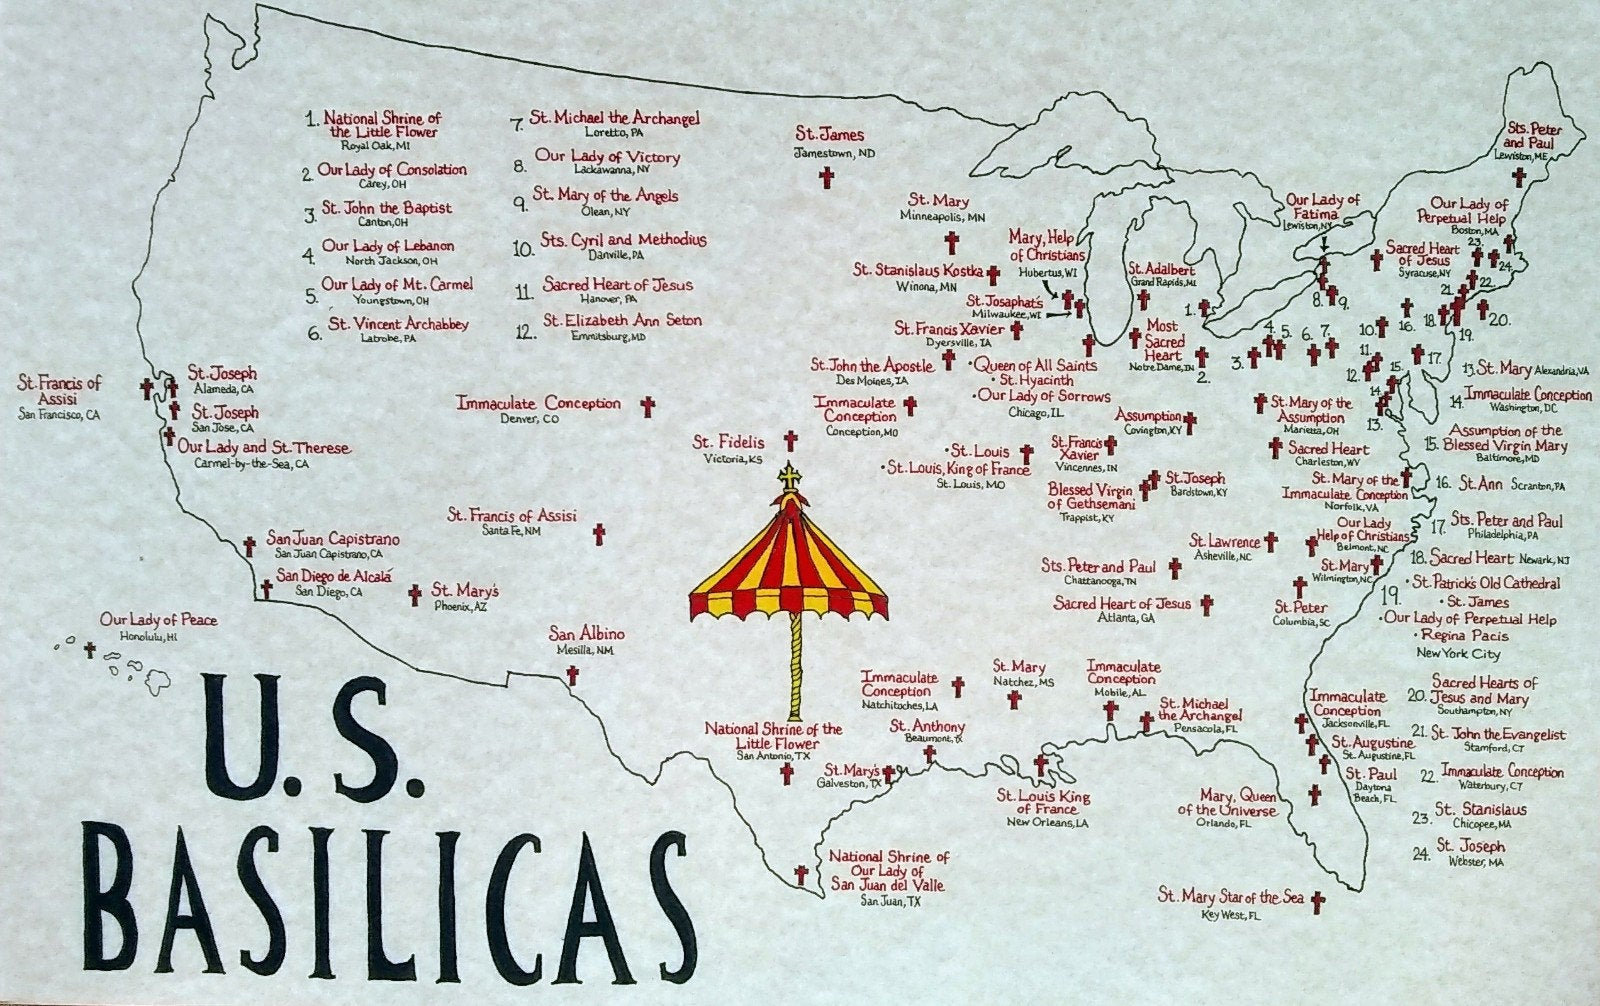 1. National Shrine of
the Little Flower
Royal Oak, MI
2. Our Lady of Consolation
Carey, OH
3. St. John the Baptist
Canton, OH
4. Our Lady of Lebanon
North Jackson, OH
5. Our Lady of Mt. Carmel
Youngstown, OH
6. St. Vincent Archabbey
Latrobe, PA
7. St. Michael the Archangel
Loretto, PA
8. Our Lady of Victory
Lackawanna, NY
9. St. Mary of the Angels
Olean, NY
10. Sts. Cyril and Methodius
Danville, PA
11. Sacred Heart of Jesus
Hanover, PA
12. St. Elizabeth Ann Seton
Emmitsburg, MD
St. James
Jamestown, ND
St. Mary
Minneapolis, MN
St. Stanislaus Kostka
Winona, MN
Mary, Help
of Christians
Hubertus, WI
St. Josaphat's
Milwaukee, WI
St. Francis Xavier
Dyersville, IA
St. John the Apostle
Des Moines, IA
• Queen of All Saints
• St. Hyacinth
• Our Lady of Sorrows
Chicago, IL
St. Adalbert
Grand Rapids, MI
Most
Sacred
Heart
Notre Dame, IN
1.
2.
3.
4.
5.
6.
7.
8.
9.
10.
11.
12.
13.
14.
15.
16.
17.
18.
19.
20.
21.
22.
23.
24.
Our Lady of
Fatima
Lewiston, NY
Sts. Peter
and Paul
Lewiston, ME
Our Lady of
Perpetual Help
Boston, MA
Sacred Heart
of Jesus
Syracuse, NY
St. Francis of
Assisi
San Francisco, CA
St. Joseph
Alameda, CA
St. Joseph
San Jose, CA
Our Lady and St. Therese
Carmel-by-the-Sea, CA
Immaculate Conception
Denver, CO
St. Fidelis
Victoria, KS
Immaculate
Conception
Conception, MO
• St. Louis
• St. Louis, King of France
St. Louis, MO
St. Francis
Xavier
Vincennes, IN
Assumption
Covington, KY
St. Mary of the
Assumption
Marietta, OH
Sacred Heart
Charleston, WV
Blessed Virgin
of Gethsemani
Trappist, KY
St. Joseph
Bardstown, KY
St. Mary of the
Immaculate Conception
Norfolk, VA
Our Lady
Help of Christians
Belmont, NC
St. Lawrence
Asheville, NC
St. Mary
Wilmington, NC
Sts. Peter and Paul
Chattanooga, TN
Sacred Heart of Jesus
Atlanta, GA
St. Peter
Columbia, SC
San Juan Capistrano
San Juan Capistrano, CA
San Diego de Alcalá
San Diego, CA
St. Francis of Assisi
Santa Fe, NM
St. Mary's
Phoenix, AZ
Our Lady of Peace
Honolulu, HI
San Albino
Mesilla, NM
Immaculate
Conception
Natchitoches, LA
St. Mary
Natchez, MS
Immaculate
Conception
Mobile, AL
St. Michael
the Archangel
Pensacola, FL
National Shrine of the
Little Flower
San Antonio, TX
St. Anthony
Beaumont, TX
St. Mary's
Galveston, TX
St. Louis King
of France
New Orleans, LA
Immaculate
Conception
Jacksonville, FL
St. Augustine
St. Augustine, FL
St. Paul
Daytona
Beach, FL
Mary, Queen
of the Universe
Orlando, FL
National Shrine of
Our Lady of
San Juan del Valle
San Juan, TX
St. Mary Star of the Sea
Key West, FL
13. St. Mary Alexandria, VA
14. Immaculate Conception
Washington, DC
15. Assumption of the
Blessed Virgin Mary
Baltimore, MD
16. St. Ann Scranton, PA
17. Sts. Peter and Paul
Philadelphia, PA
18. Sacred Heart Newark, NJ
19. • St. Patrick's Old Cathedral
• St. James
• Our Lady of Perpetual Help
• Regina Pacis
New York City
20. Sacred Hearts of
Jesus and Mary
Southampton, NY
21. St. John the Evangelist
Stamford, CT
22. Immaculate Conception
Waterbury, CT
23. St. Stanislaus
Chicopee, MA
24. St. Joseph
Webster, MA
U.S.
BASILICAS